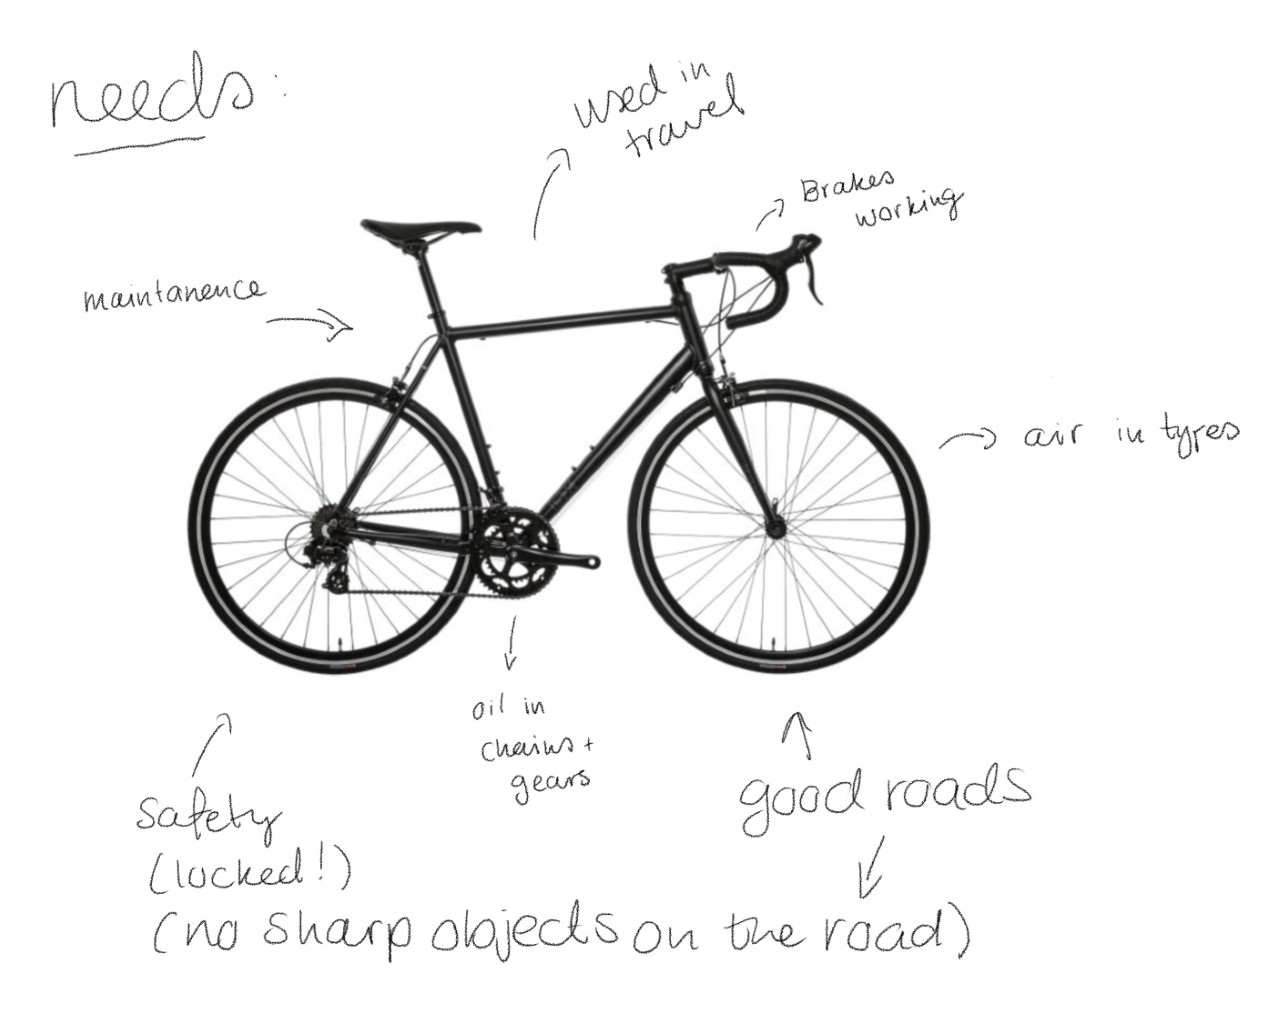 needs:
used in
travel
Brakes
working
maintanence
air in tyres
oil in
chains +
gears
good roads
safety
(locked!)
(no sharp objects on the road)